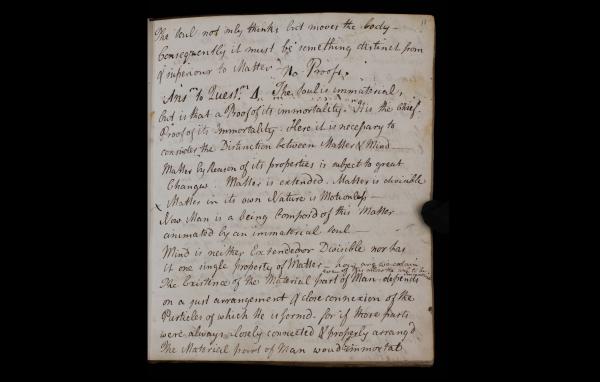 11
The Soul not only thinks but moves the body —
Consequently it must be something distinct from
& superiour to Matter — No Proofs.
Answ. to Quest.n 4. The Soul is immaterial,
but is that a Proof of its immortality. It is the Chief
Proof of its Immortality. Here it is necessary to
consider the Distinction between Matter & Mind —
Matter by Reason of its properties is subject to great
Changes. Matter is extended. Matter is divisible
Matter in its own Nature is Motionless —
Now Man is a being Compos'd of this Matter
animated by an immaterial soul —
Mind is neither Extended or Divisible nor has
it one single property of Matter — how are we certain
The Existence of the Material part of Man depends
on a just arrangement & close connexion of the
Particles of which He is form'd. for if those parts
were always closely connected & properly arrang'd
The Material part of Man would immortal